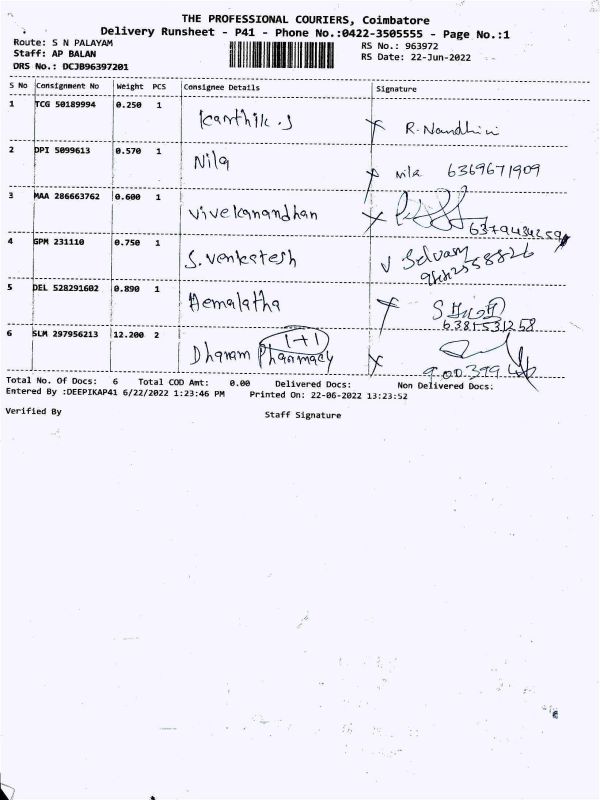 THE PROFESSIONAL COURIERS, Coimbatore
Delivery Runsheet - P41 - Phone No.:0422-3505555 - Page No.:1
Route: S N PALAYAM
RS No.: 963972
Staff: AP BALAN
RS Date: 22-Jun-2022
DRS No.: DCJB96397201
S No Consignment No Weight PCS Consignee Details Signature
1 TCG 50189994 0.250 1 Karthik.J R. Nandhini
2 DPI 5099613 0.570 1 Nila Nila 6369671909
3 MAA 286663762 0.600 1 Vivekanandhan
4 GPM 231110 0.750 1 S. Venkatesh Selvam
5 DEL 528291602 0.890 1 Hemalatha
6381531258
6 SLM 297956213 12.200 2 Dhanam Pharmacy 1+1
Total No. Of Docs: 6 Total COD Amt: 0.00 Delivered Docs: Non Delivered Docs:
Entered By :DEEPIKAP41 6/22/2022 1:23:46 PM Printed On: 22-06-2022 13:23:52
Verified By Staff Signature